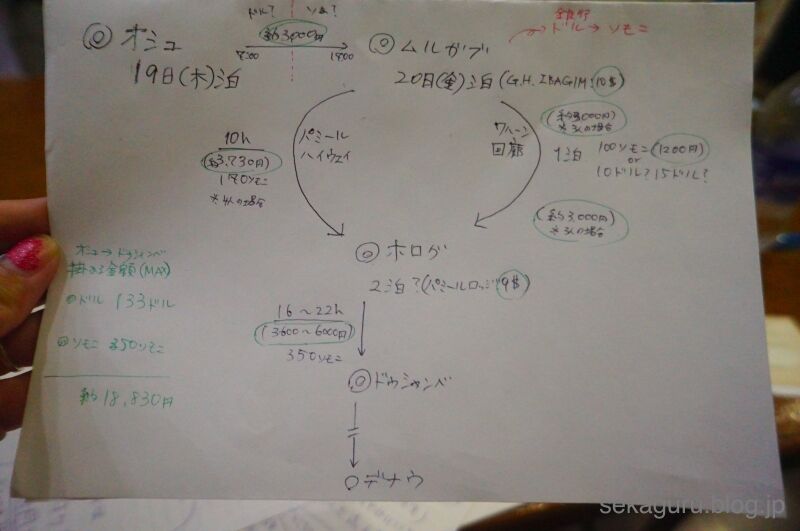 ドル? ソム?
◎ オシュ
約3,000円
8:00
18:00
19日(木)泊
◎ ムルガブ
銀行
ドル → ソモニ
20日(金)泊 (G.H. IBAGIM : 10$)
10h
(約3,730円)
190ソモニ
※4人の場合
パミール
ハイウェイ
ワハーン
回廊
※3人の場合
1泊 100ソモニ(1200円)
or
10ドル? 15ドル?
(約3,000円)
※3人の場合
◎ ホログ
2泊?(パミールロッジ 9$)
オシュ→ドゥシャンベ
掛かる金額(MAX)
◎ドル 133ドル
◎ソモニ 350ソモニ
約18,830円
16~22h
(3600~6000円)
350ソモニ
◎ドゥシャンベ
○デナウ
sekaguru.blog.jp